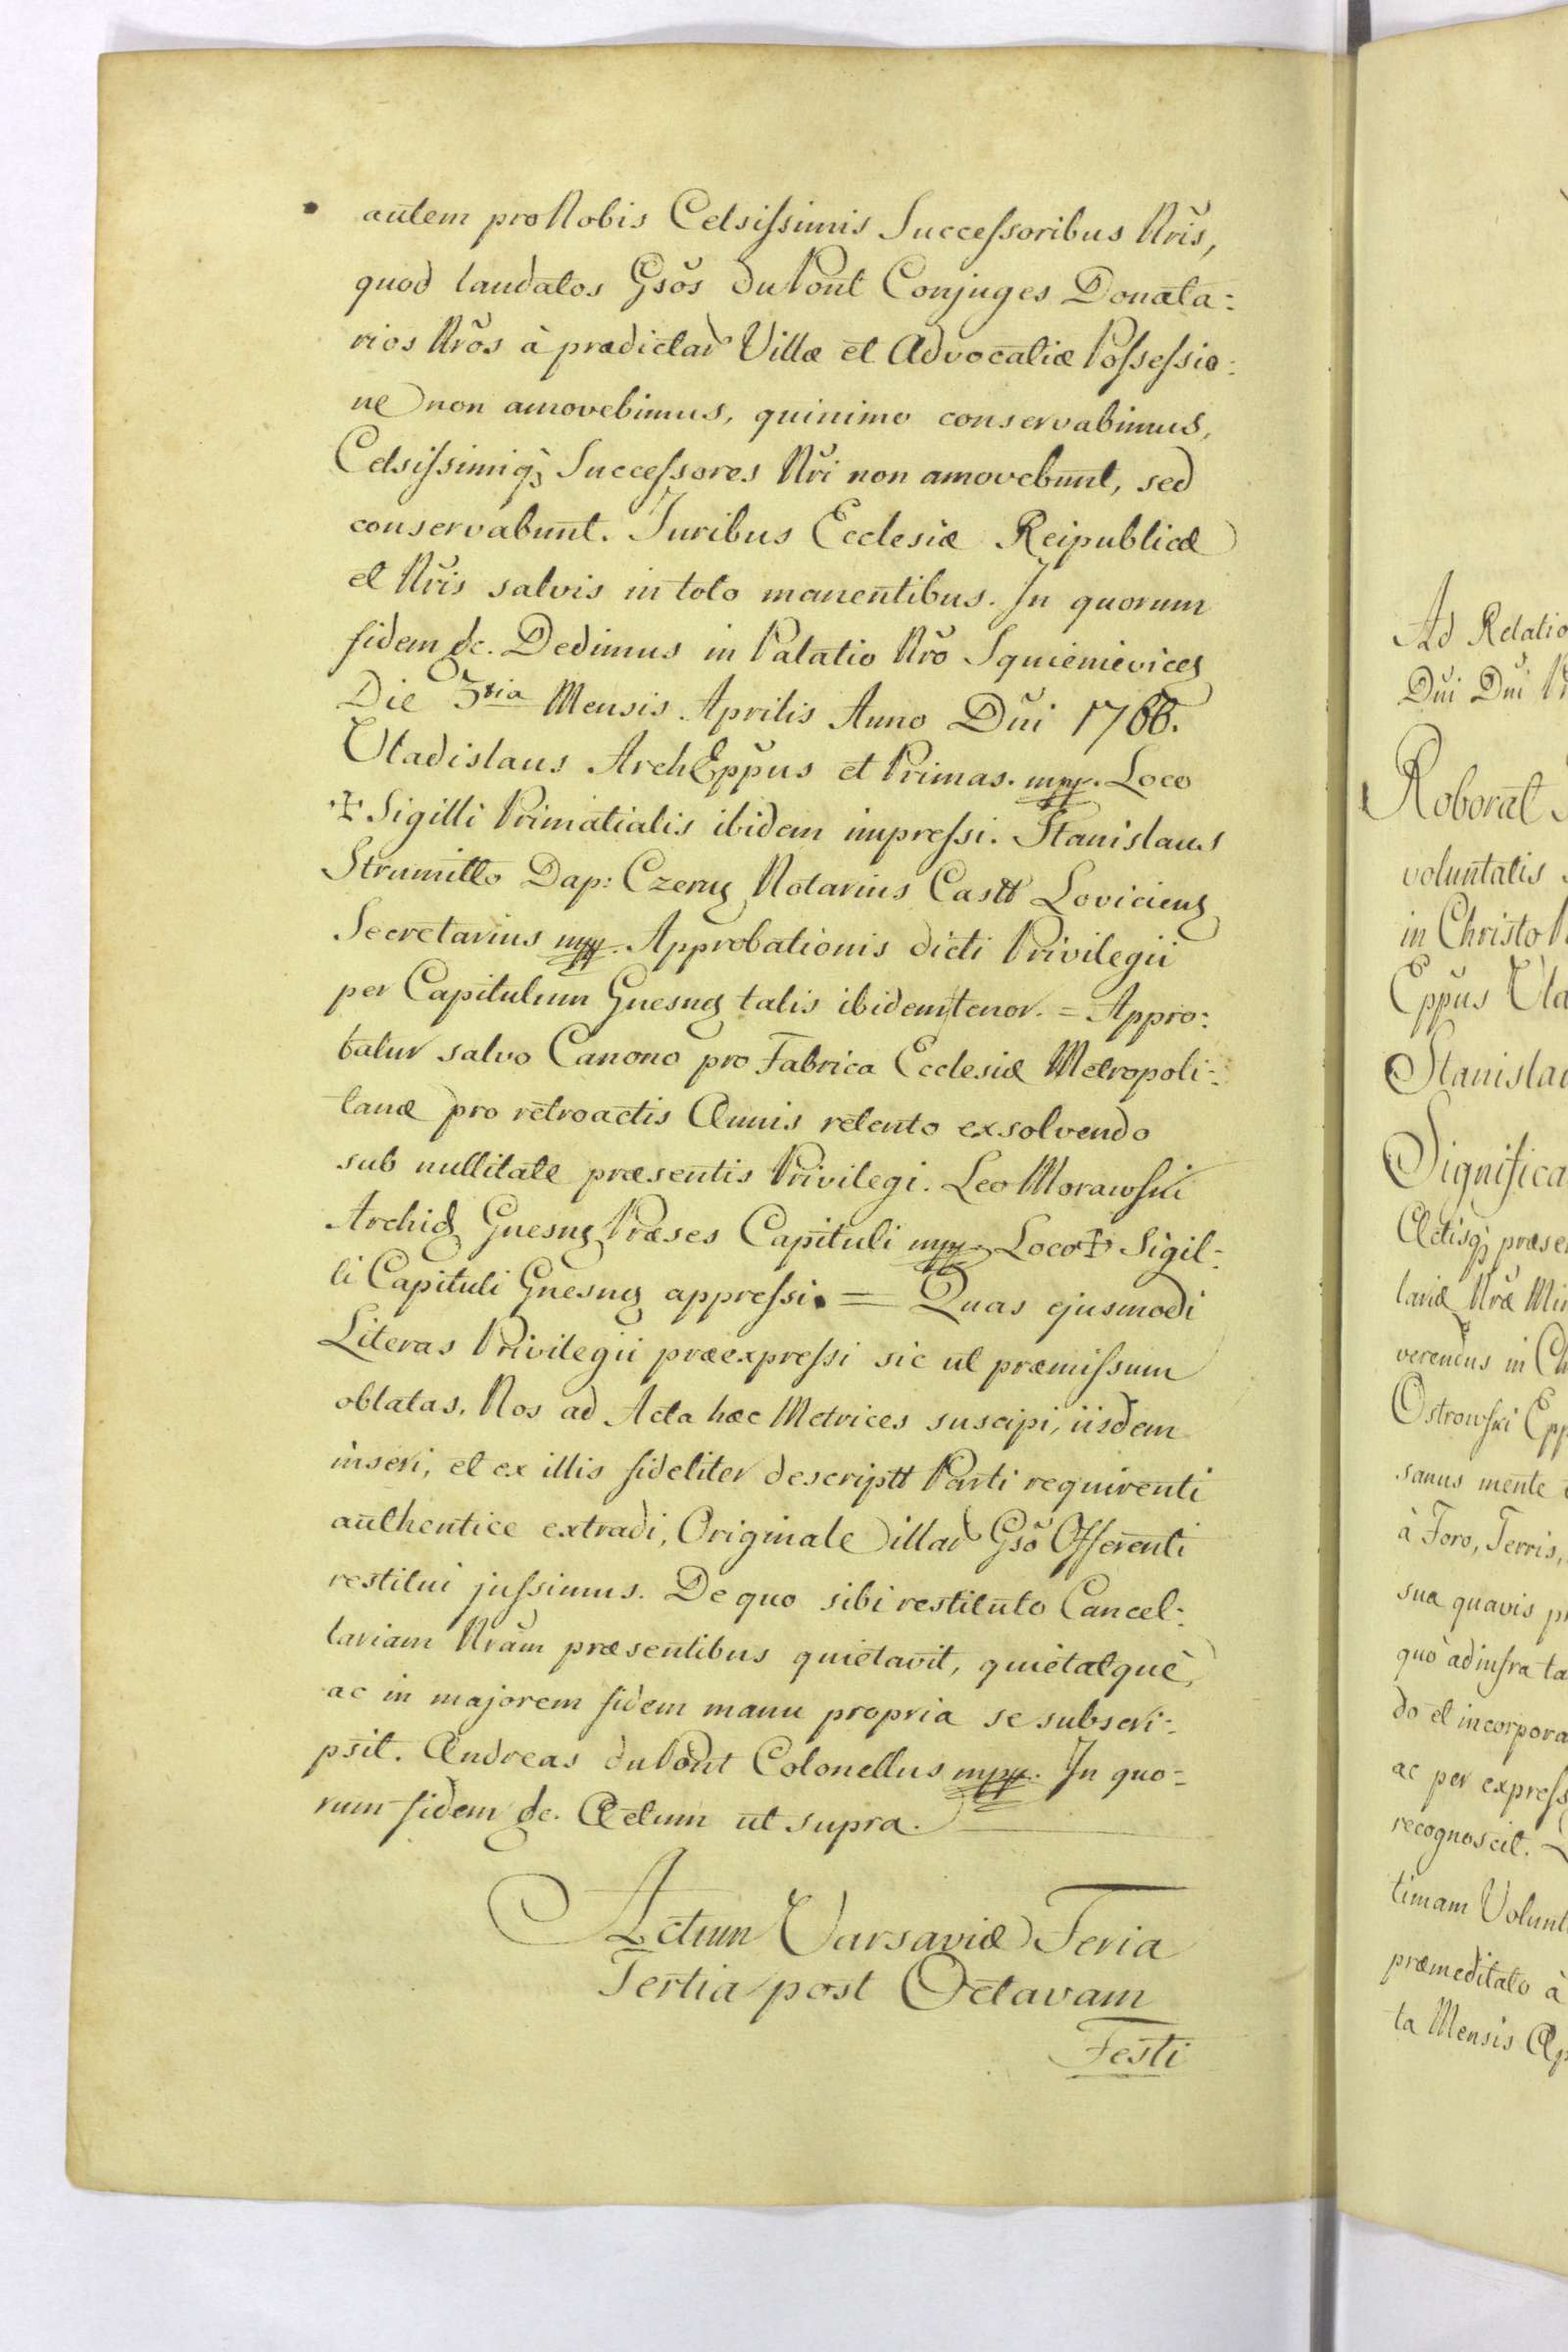 autem pro Nobis Celsissimis Successoribus Nr̃is,
quod laudatos Gsõs du Pont Conjuges Donata:
rios Nr̃os à prædictar Villæ et Advocatiæ Possessio:
ne non amovebimus, quinimo conservabimus,
Celsissimiq; Successores Nr̃i non amovebunt, sed
conservabunt. Juribus Ecclesiæ Reipublicæ
et Nr̃is salvis in toto manentibus. In quorum
fidem &c. Dedimus in Palatio Nr̃o Squienieviceñ
Die 3tia Mensis Aprilis Anno Dñi 1766.
Vladislaus ArchEppus et Primas. mpp. Loco
✠ Sigilli Primatialis ibidem impressi. Stanislaus
Strumillo Dap: Czerng Notarius Castt Lovicieng
Secretarius mpp. Approbationis dicti Privilegii
per Capitulum Gnesng talis ibidem tenor. = Appro:
batur salvo Canono pro Fabrica Ecclesiæ Metropoli:
tanæ pro retroactis Annis retento exsolvendo
sub nullitate præsentis Privilegi. Leo Morawski
Archid Gnesng Præses Capituli mpp. Loco ✠ Sigil:
li Capituli Gnesng appressi. = Quas ejusmodi
Literas Privilegii præexpressi sic ut præmissum
oblatas, Nos ad Acta hæc Metrices suscipi, iisdem
inseri, et ex illis fideliter descriptt Parti requirenti
authentice extradi, Originale illar Gsõ Offerenti
restitui jussimus. De quo sibi restituto Cancel:
lariam Nr̃am præsentibus quietavit, quietatquè,
ac in majorem fidem manu propria se subscri:
psit. Andreas du Pont Colonellus mpp. In quo:
rum fidem &c. Actum ut supra.
Actum Varsaviæ Feria
Tertia post Octavam
Festi
Ad Relatio
Dñi Dñi
Roborat
voluntatis
in Christo
Eppus Vla
Stanislau
Significa
Actisq; præse
lariæ Nr̃æ Mi
verendus in Ch
Ostrowski Epp
sanus mente
à Foro, Terris,
sua quavis p
quò ad infra ta
do et incorpora
ac per express
recognoscit.
timam Volunt
præmeditato à
ta Mensis Ap